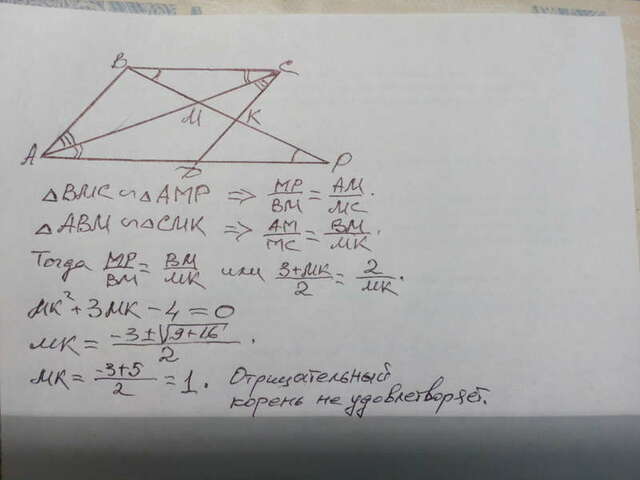 B C
M K
A D P
△BMC ∽ △AMP ⇒ MP/BM = AM/MC.
△ABM ∽ △CMK ⇒ AM/MC = BM/MK.
Тогда MP/BM = BM/MK или 3+MK/2 = 2/MK.
MK² + 3MK - 4 = 0
MK = -3±√9+16/2.
MK = -3+5/2 = 1. Отрицательный
корень не удовлетворяет.